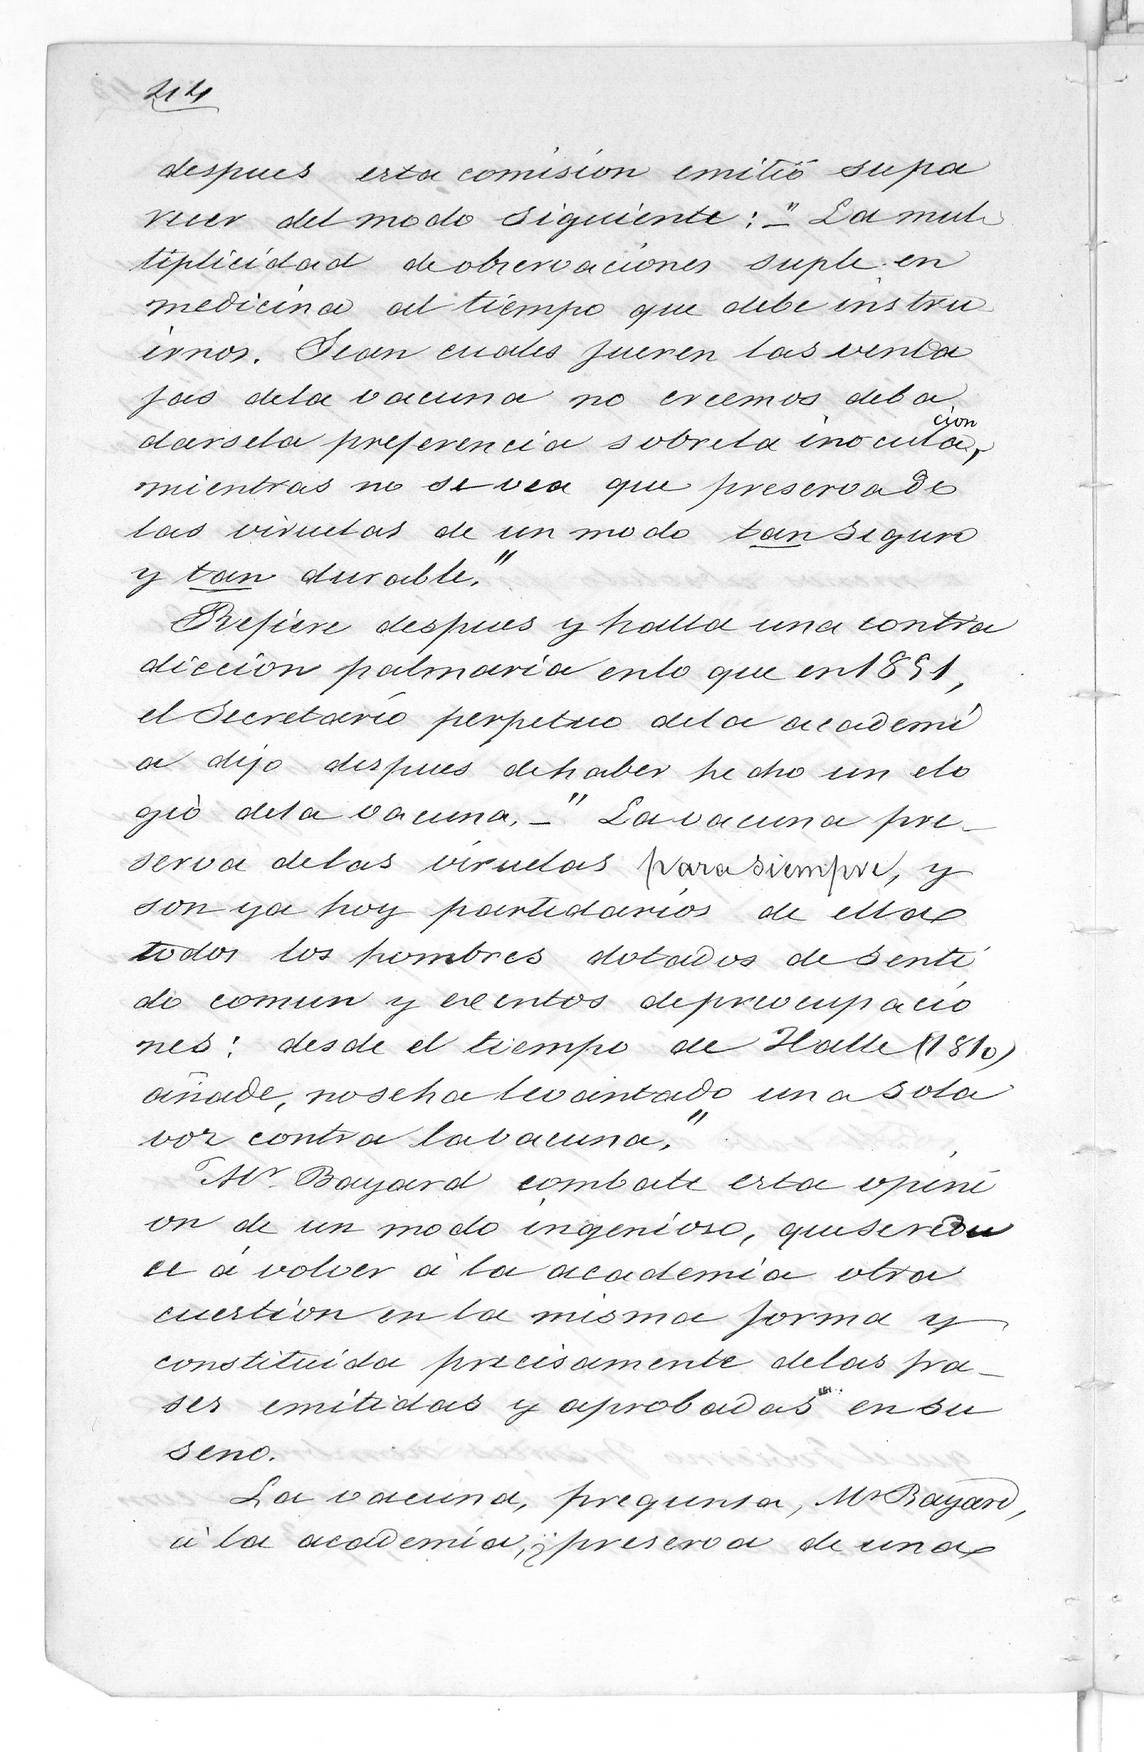 44
despues esta comision emitió su pa
recer del modo siguiente: – "La mul-
tiplicidad de observaciones suple en
medicina al tiempo que debe instru
irnos. Sean cuales fueren las venta
jas de la vacuna no creemos deba
darsela preferencia sobre la inoculacion,
mientras no se vea que preserva de
las viruelas de un modo tan seguro
y tan durable."
Refiere despues y halla una contra
diccion palmaria en lo que en 1851,
el Secretario perpetuo de la academi
a dijo despues de haber hecho un elo
gio de la vacuna. – "La vacuna pre-
serva de las viruelas para siempre, y
son ya hoy partidarios de ella
todos los hombres dotados de senti
do comun y exentos de preocupacio
nes: desde el tiempo de Halle (1810)
añade, no se ha levantado una sola
voz contra la vacuna."
Mr. Bayard combate esta opini
on de un modo ingenioso, que se redu
ce á volver à la academia otra
cuestion en la misma forma y
constituida precisamente de las fra-
ses emitidas y aprobadas en su
seno.
La vacuna, pregunta, Mr Bayard,
à la academia, ¿preserva de una